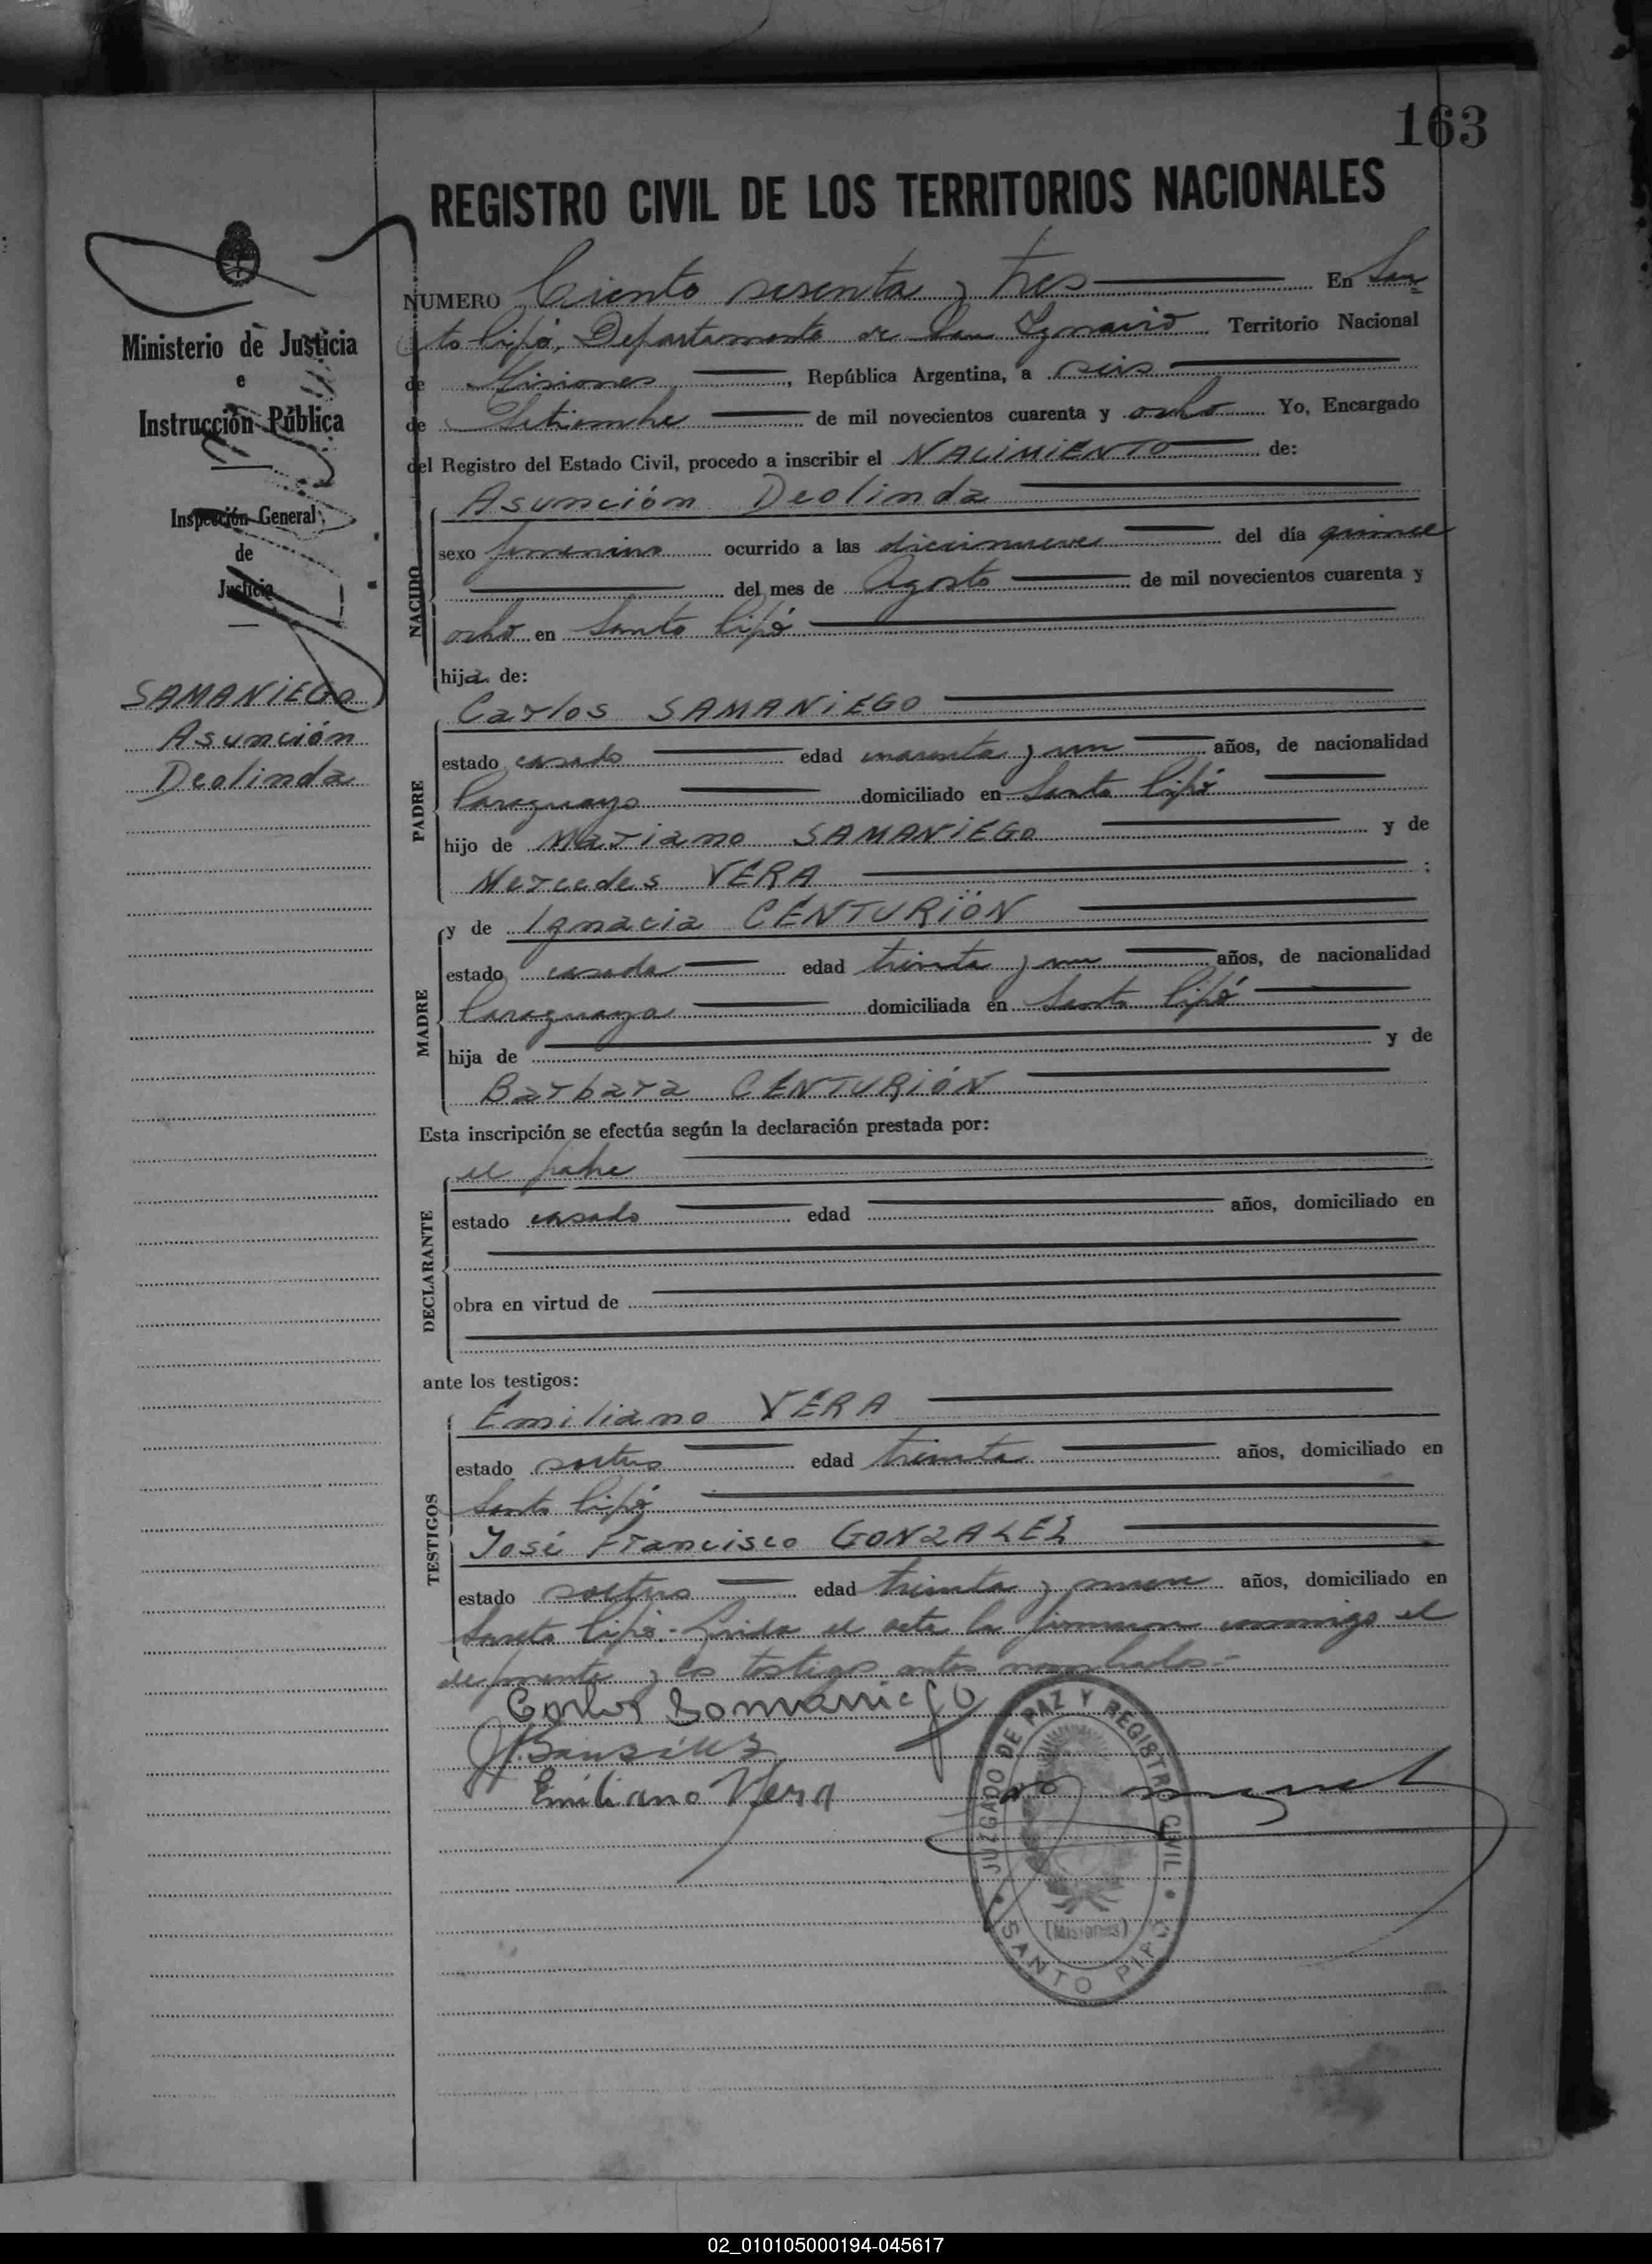 163
REGISTRO CIVIL DE LOS TERRITORIOS NACIONALES
Ministerio de Justicia
e
Instrucción Pública
Inspección General
de
Justicia
SAMANiEGO
Asunción
Deolinda
NUMERO Ciento sesenta y tres En San
to Pipó, Departamento de San Ignacio Territorio Nacional
de Misiones, República Argentina, a seis
de Setiembre de mil novecientos cuarenta y ocho Yo, Encargado
del Registro del Estado Civil, procedo a inscribir el NACiMiENTO de:
NACIDO
Asunción Deolinda
sexo femenino ocurrido a las diecinueve del día quince
del mes de Agosto de mil novecientos cuarenta y
ocho en Santo Pipó
hija de:
PADRE
Carlos SAMANiEGO
estado casado edad cuarenta y un años, de nacionalidad
Paraguayo domiciliado en Santo Pipó
hijo de Mariano SAMANiEGO y de
Mercedes VERA :
MADRE
y de Ignacia CENTURiÓN
estado casada edad treinta y un años, de nacionalidad
Paraguaya domiciliada en Santo Pipó
hija de y de
Barbara CENTURiÓN
Esta inscripción se efectúa según la declaración prestada por:
DECLARANTE
el padre
estado casado edad años, domiciliado en
obra en virtud de
ante los testigos:
TESTIGOS
Emiliano VERA
estado soltero edad treinta años, domiciliado en
Santo Pipó
José Francisco GONZALEZ
estado soltero edad treinta y nueve años, domiciliado en
Santo Pipó.- Leída el acta la firmaron conmigo el
deponente y los testigos antes nombrados.-
Carlos Samaniego
Emiliano Vera
JUZGADO DE PAZ Y REGISTRO CIVIL
(Misiones)
SANTO PIPÓ
02_010105000194-045617